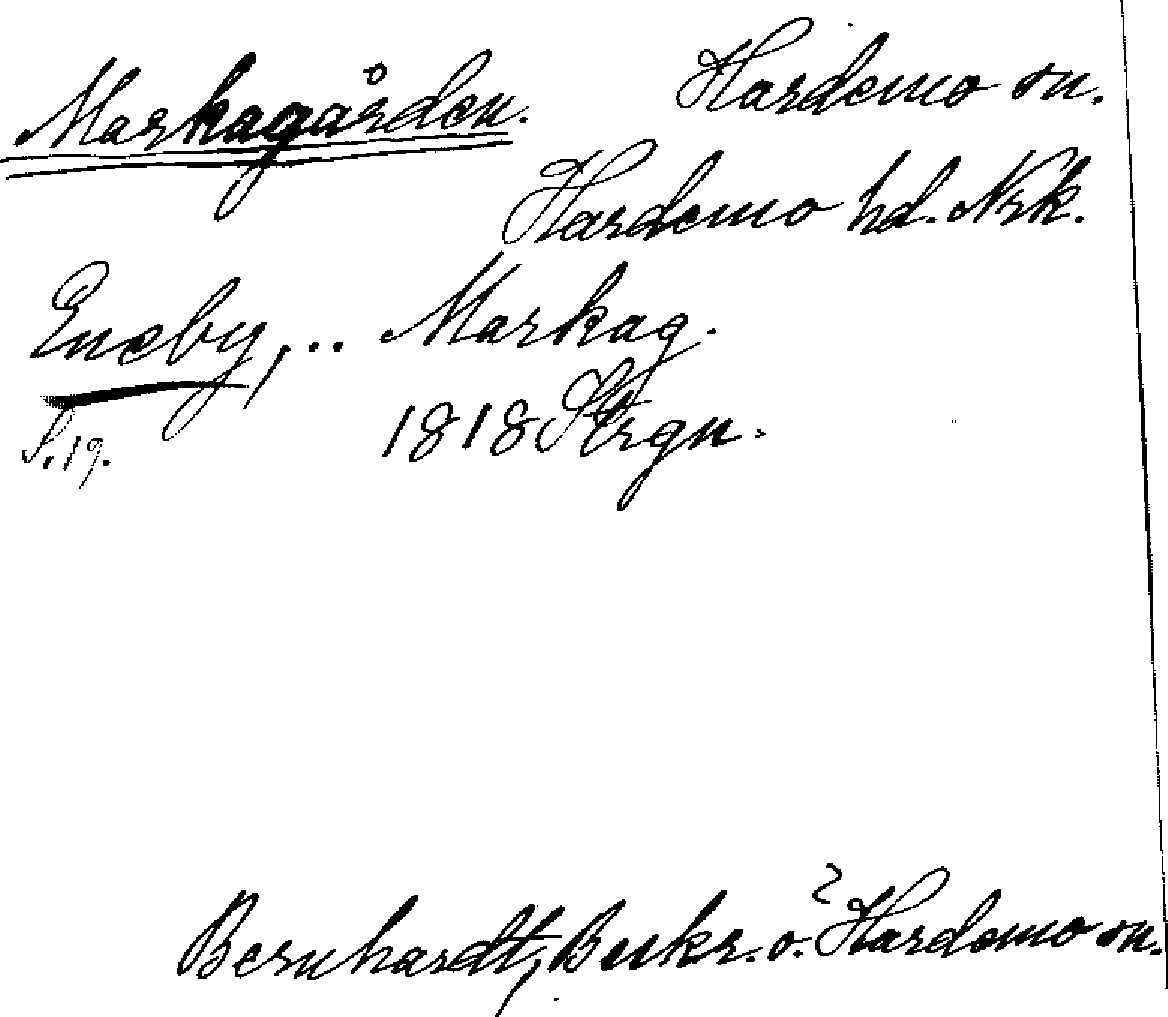 Markagården. Hardemo sn.
Hardemo hd. Nrk.
Eneby, .. Markag.
S. 19. 1818 Strgn.
Bernhardt, Beskr. o. Hardemo sn.